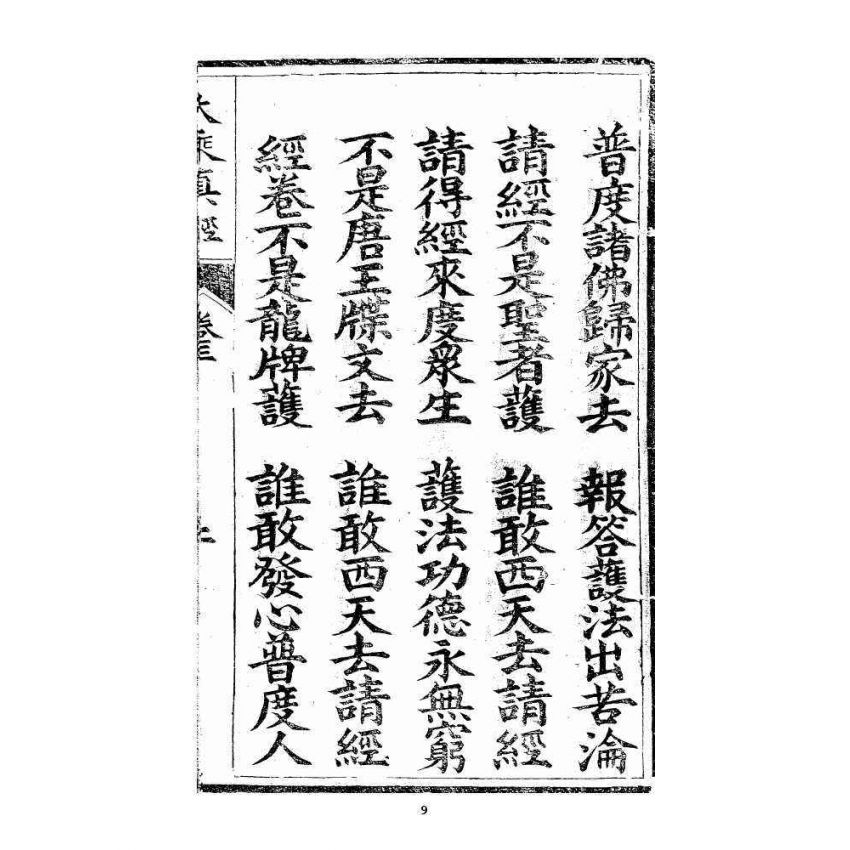 普度諸佛歸家去 報答護法出苦淪
請經不是聖者護 誰敢西天去請經
請得經來度衆生 護法功德永無窮
不是唐王牒文去 誰敢西天去請經
經卷不是龍牌護 誰敢發心普度人
大乘真經 卷三
9